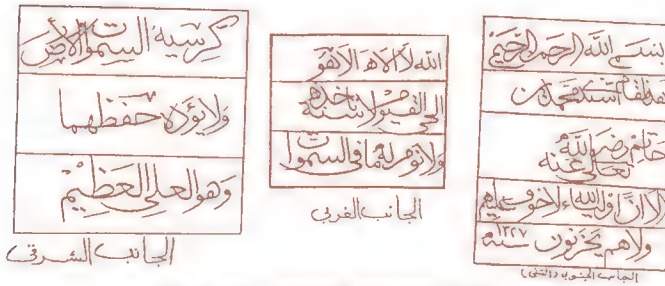 بسم الله الرحمن الرحيم
هذا مقام السيد محمد بن
حاتم رضي الله
تعالى عنه
الا ان اوليا الله لا خوف عليهم
ولا هم يحزنون سنة ١٢٢٧
الجانب الجنوبي (القبلي)
الله لا اله الا هو
الحي القيوم لا تاخذه سنة
ولا نوم له ما في السموات
الجانب الغربي
كرسيه السموات والارض
ولا يؤده حفظهما
وهو العلي العظيم
الجانب الشرقي